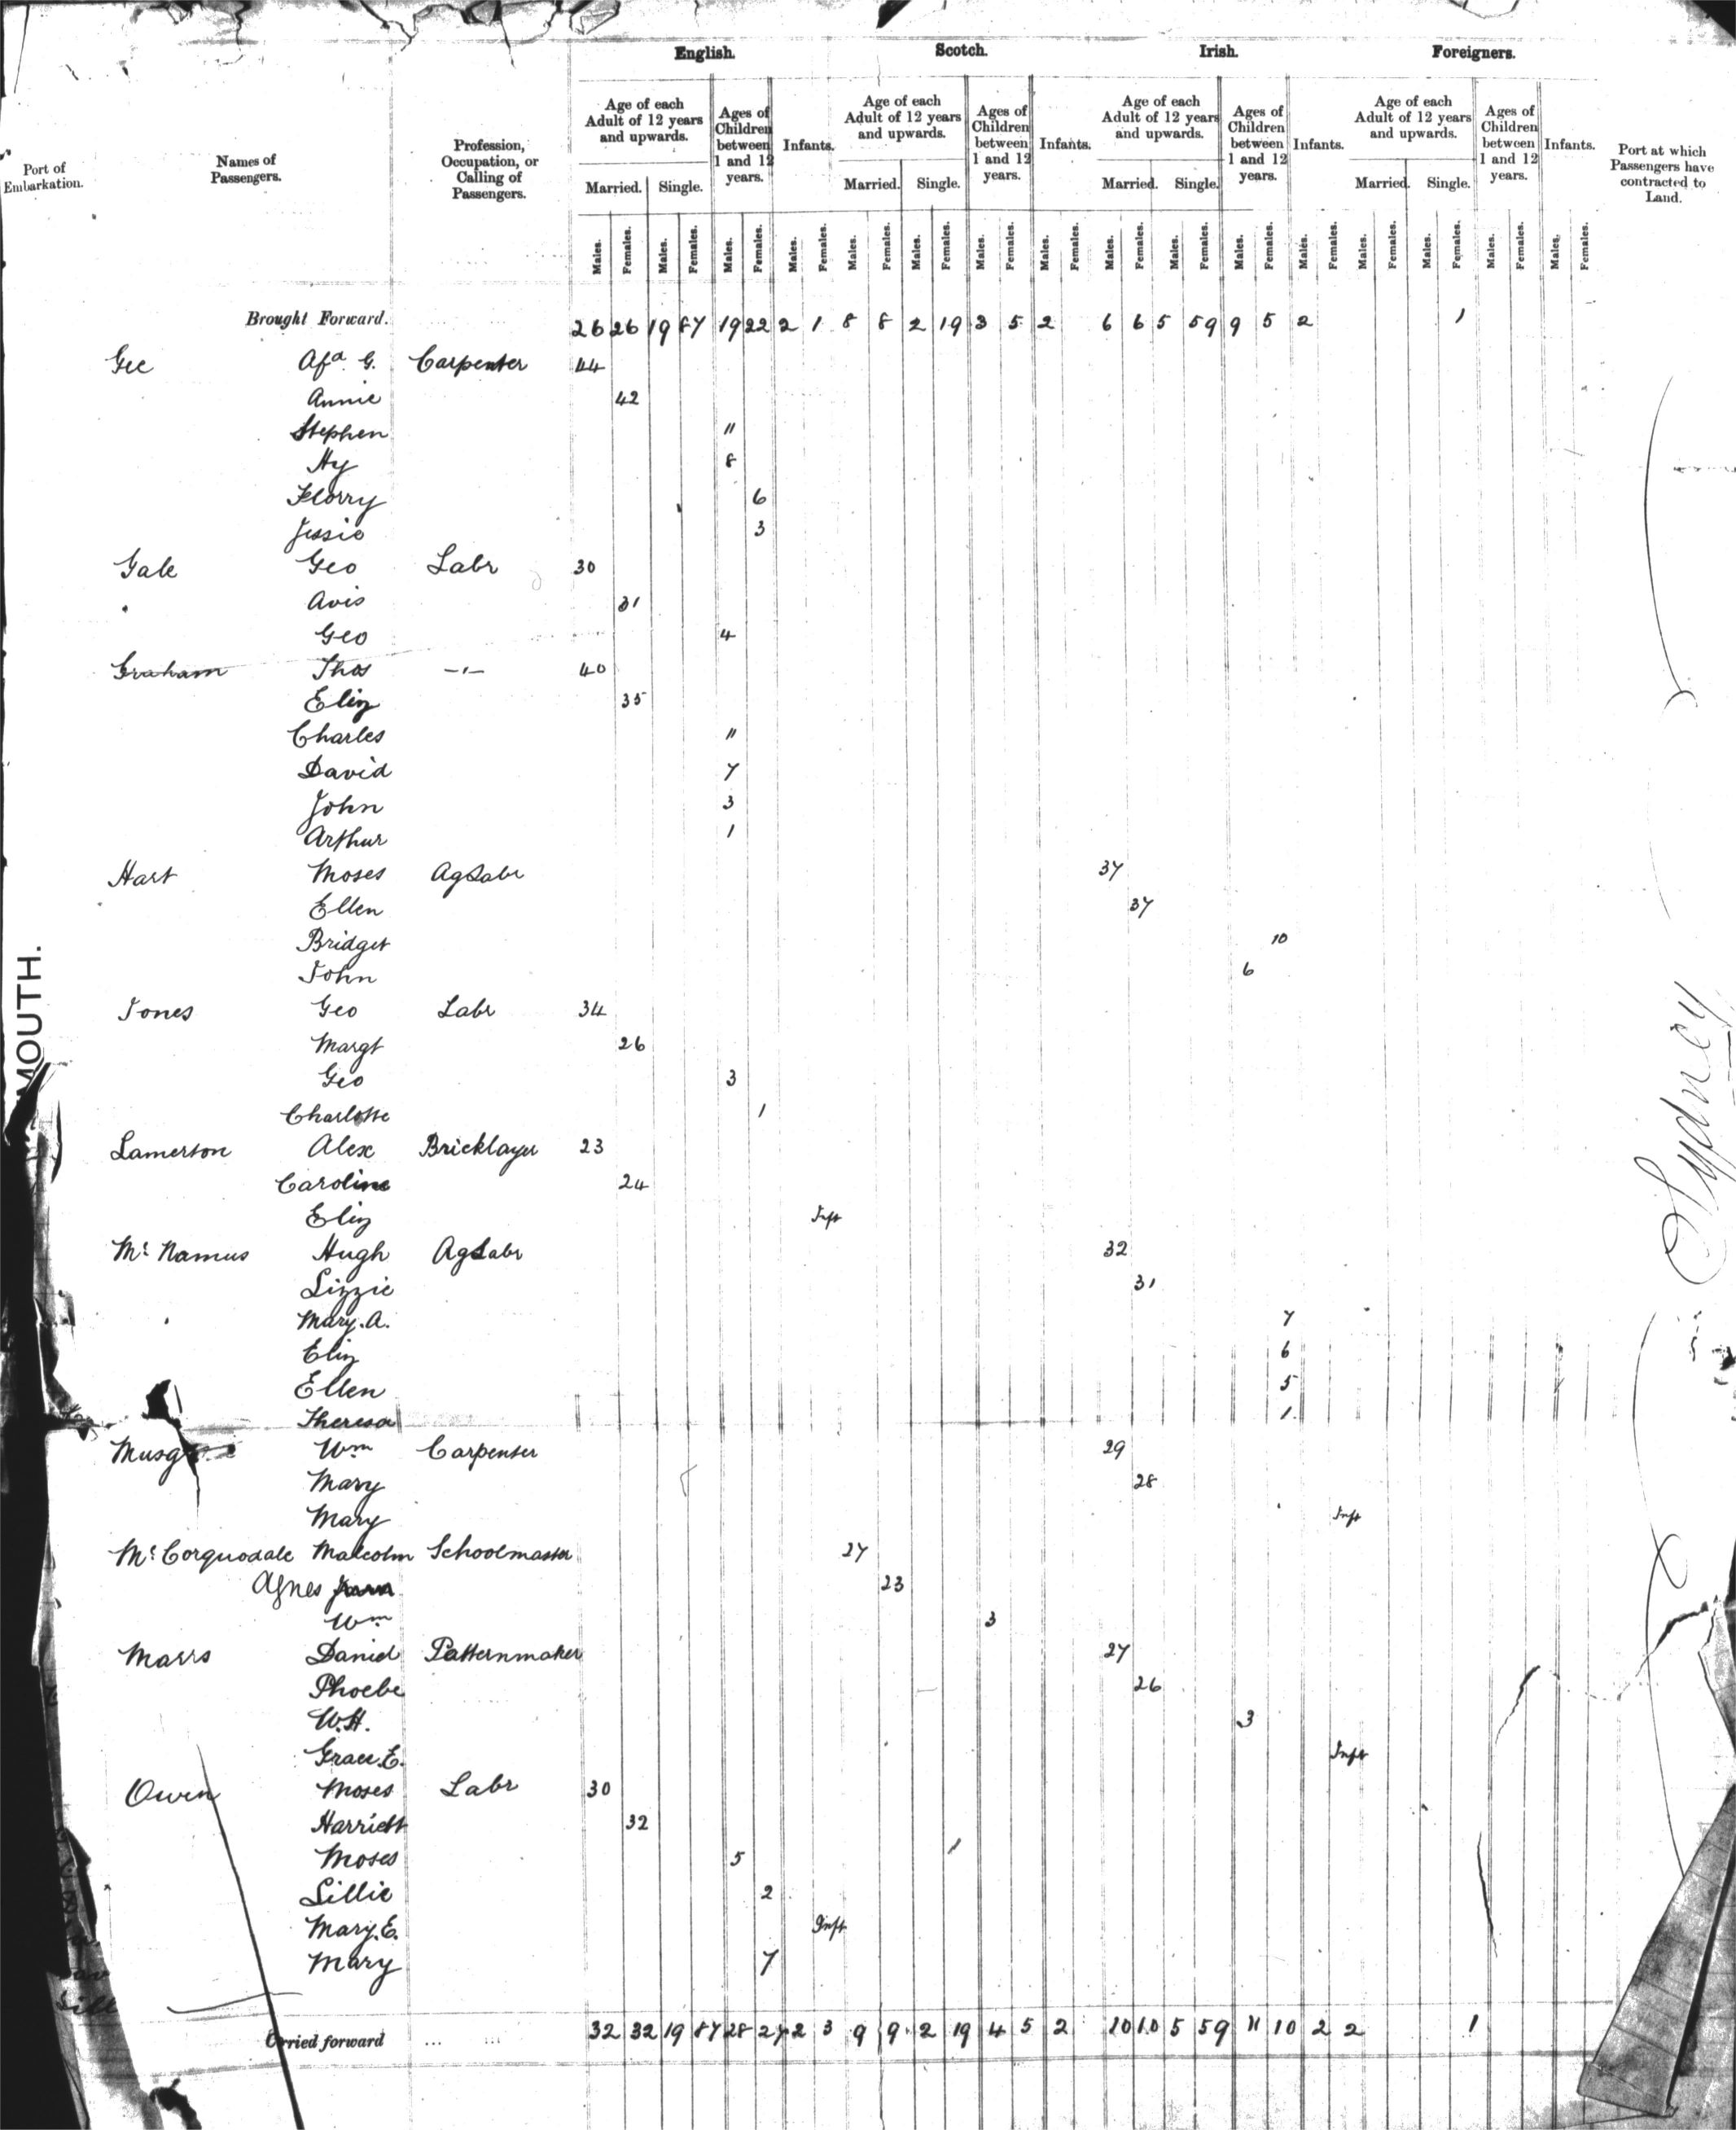 English. Scotch. Irish. Foreigners.
Port of Embarkation. Names of Passengers. Profession, Occupation, or Calling of Passengers. Age of each Adult of 12 years and upwards. Ages of Children between 1 and 12 years. Infants. Age of each Adult of 12 years and upwards. Ages of Children between 1 and 12 years. Infants. Age of each Adult of 12 years and upwards. Ages of Children between 1 and 12 years. Infants. Age of each Adult of 12 years and upwards. Ages of Children between 1 and 12 years. Infants. Port at which Passengers have contracted to Land.
Married. Single. Married. Single. Married. Single. Married. Single.
Males. Females. Males. Females. Males. Females. Males. Females. Males. Females. Males. Females. Males. Females. Males. Females. Males. Females. Males. Females. Males. Females. Males. Females. Males. Females. Males. Females. Males. Females. Males. Females.
Brought Forward. 26 26 19 87 19 22 2 1 8 8 2 19 3 5 2 6 6 5 59 9 5 2 1
Gee Afd. G. Carpenter 44
Annie 42
Stephen 11
Hy 8
Florry 6
Jessie 3
Gale Geo Labr 30
Avis 31
Geo 4
Graham Thos -"- 40
Eliz 35
Charles 11
David 7
John 3
Arthur 1
Hart Moses AgLabr 37
Ellen 37
Bridget 10
John 6
Jones Geo Labr 34
Margt 26
Geo 3
Charlotte 1
Lamerton Alex Bricklayer 23
Caroline 24
Eliz Inft
Mc Namus Hugh AgLabr 32
Lizzie 31
Mary. A. 7
Eliz 6
Ellen 5
Theresa 1
Musg Wm Carpenter 29
Mary 28
Mary Inft
Mc Corquodale Malcolm Schoolmaster 27
Agnes 23
Wm 3
Marrs Daniel Patternmaker 27
Phoebe 26
W.H. 3
Grace. E. Inft
Owen Moses Labr 30
Harriett 32
Moses 5
Lillie 2
Mary. E. Inft
Mary 7
Carried forward ... ... 32 32 19 87 28 27 2 3 9 9 2 19 4 5 2 10 10 5 59 11 10 2 2 1
MOUTH.
Sydney